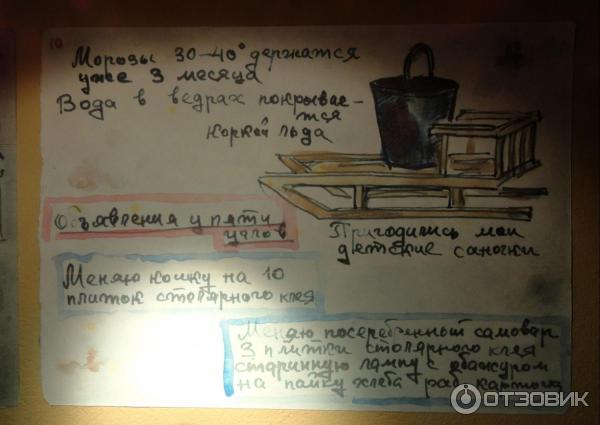 10
Морозы 30-40° держатся
уже 3 месяца
Вода в ведрах покрывае-
тся
коркой льда
Пригодились мои
детские саночки
Объявления у пяти
углов
Меняю кошку на 10
плиток столярного клея
Меняю посеребренный самовар
3 плитки столярного клея
старинную лампу с абажуром
на пайку хлеба раб карточка
ОТЗОВИК